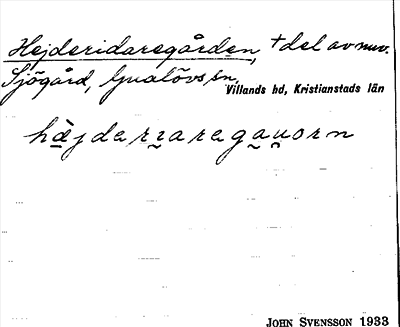 Hejderidaregården, † del av nuv.
Sjögård, Gualövs sn,
Villands hd, Kristianstads län
hä̱jderɪ̰arega̰ṵorn
JOHN SVENSSON 1933